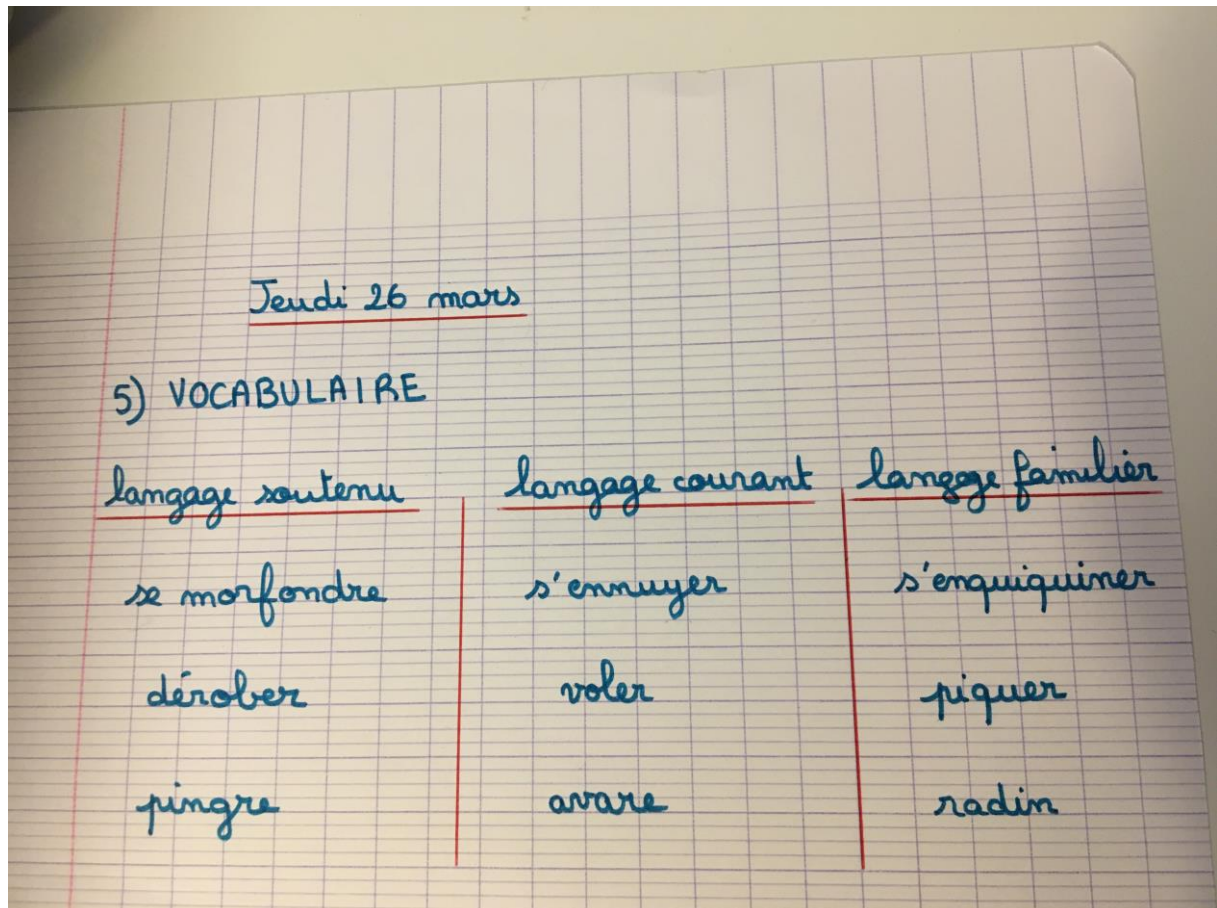 Jeudi 26 mars
5) VOCABULAIRE
langage soutenu langage courant langage familier
se morfondre s'ennuyer s'enquiquiner
dérober voler piquer
pingre avare radin